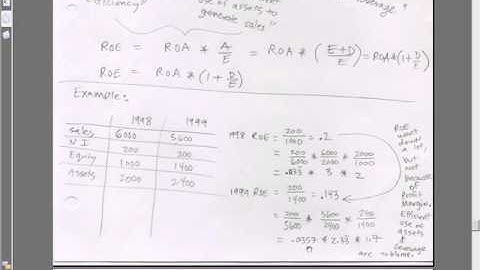 Efficiency"
use of assets to
generate sales"
leverage"
ROE = ROA * A/E = ROA * (E+D/E) = ROA*(1+D/E)
ROE = ROA * (1+D/E)
Example:
1998 1999
Sales 6000 5600
N I 200 200
Equity 1000 1400
Assets 2000 2400
1998 ROE = 200/1000 = .2
= 200/6000 * 6000/2000 * 2000/1000
= .033 * 3 * 2
1999 ROE = 200/1400 = .143
= 200/5600 * 5600/2400 * /1400
= .0357 * 2.33 * 1.7
ROE
went
down
a lot,
but
not
because
of
Profit
Margin.
Efficient
use of
assets
&
leverage
are